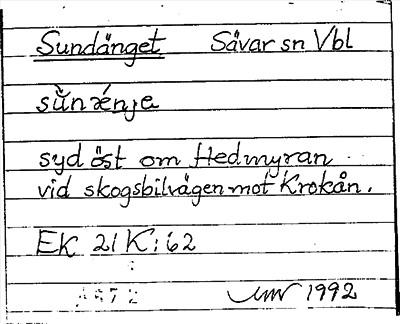 Sundänget Sävar sn Vbl
syd öst om Hedmyran
vid skogsbilvägen mot Krokån.
EK 21 K: 62
1992